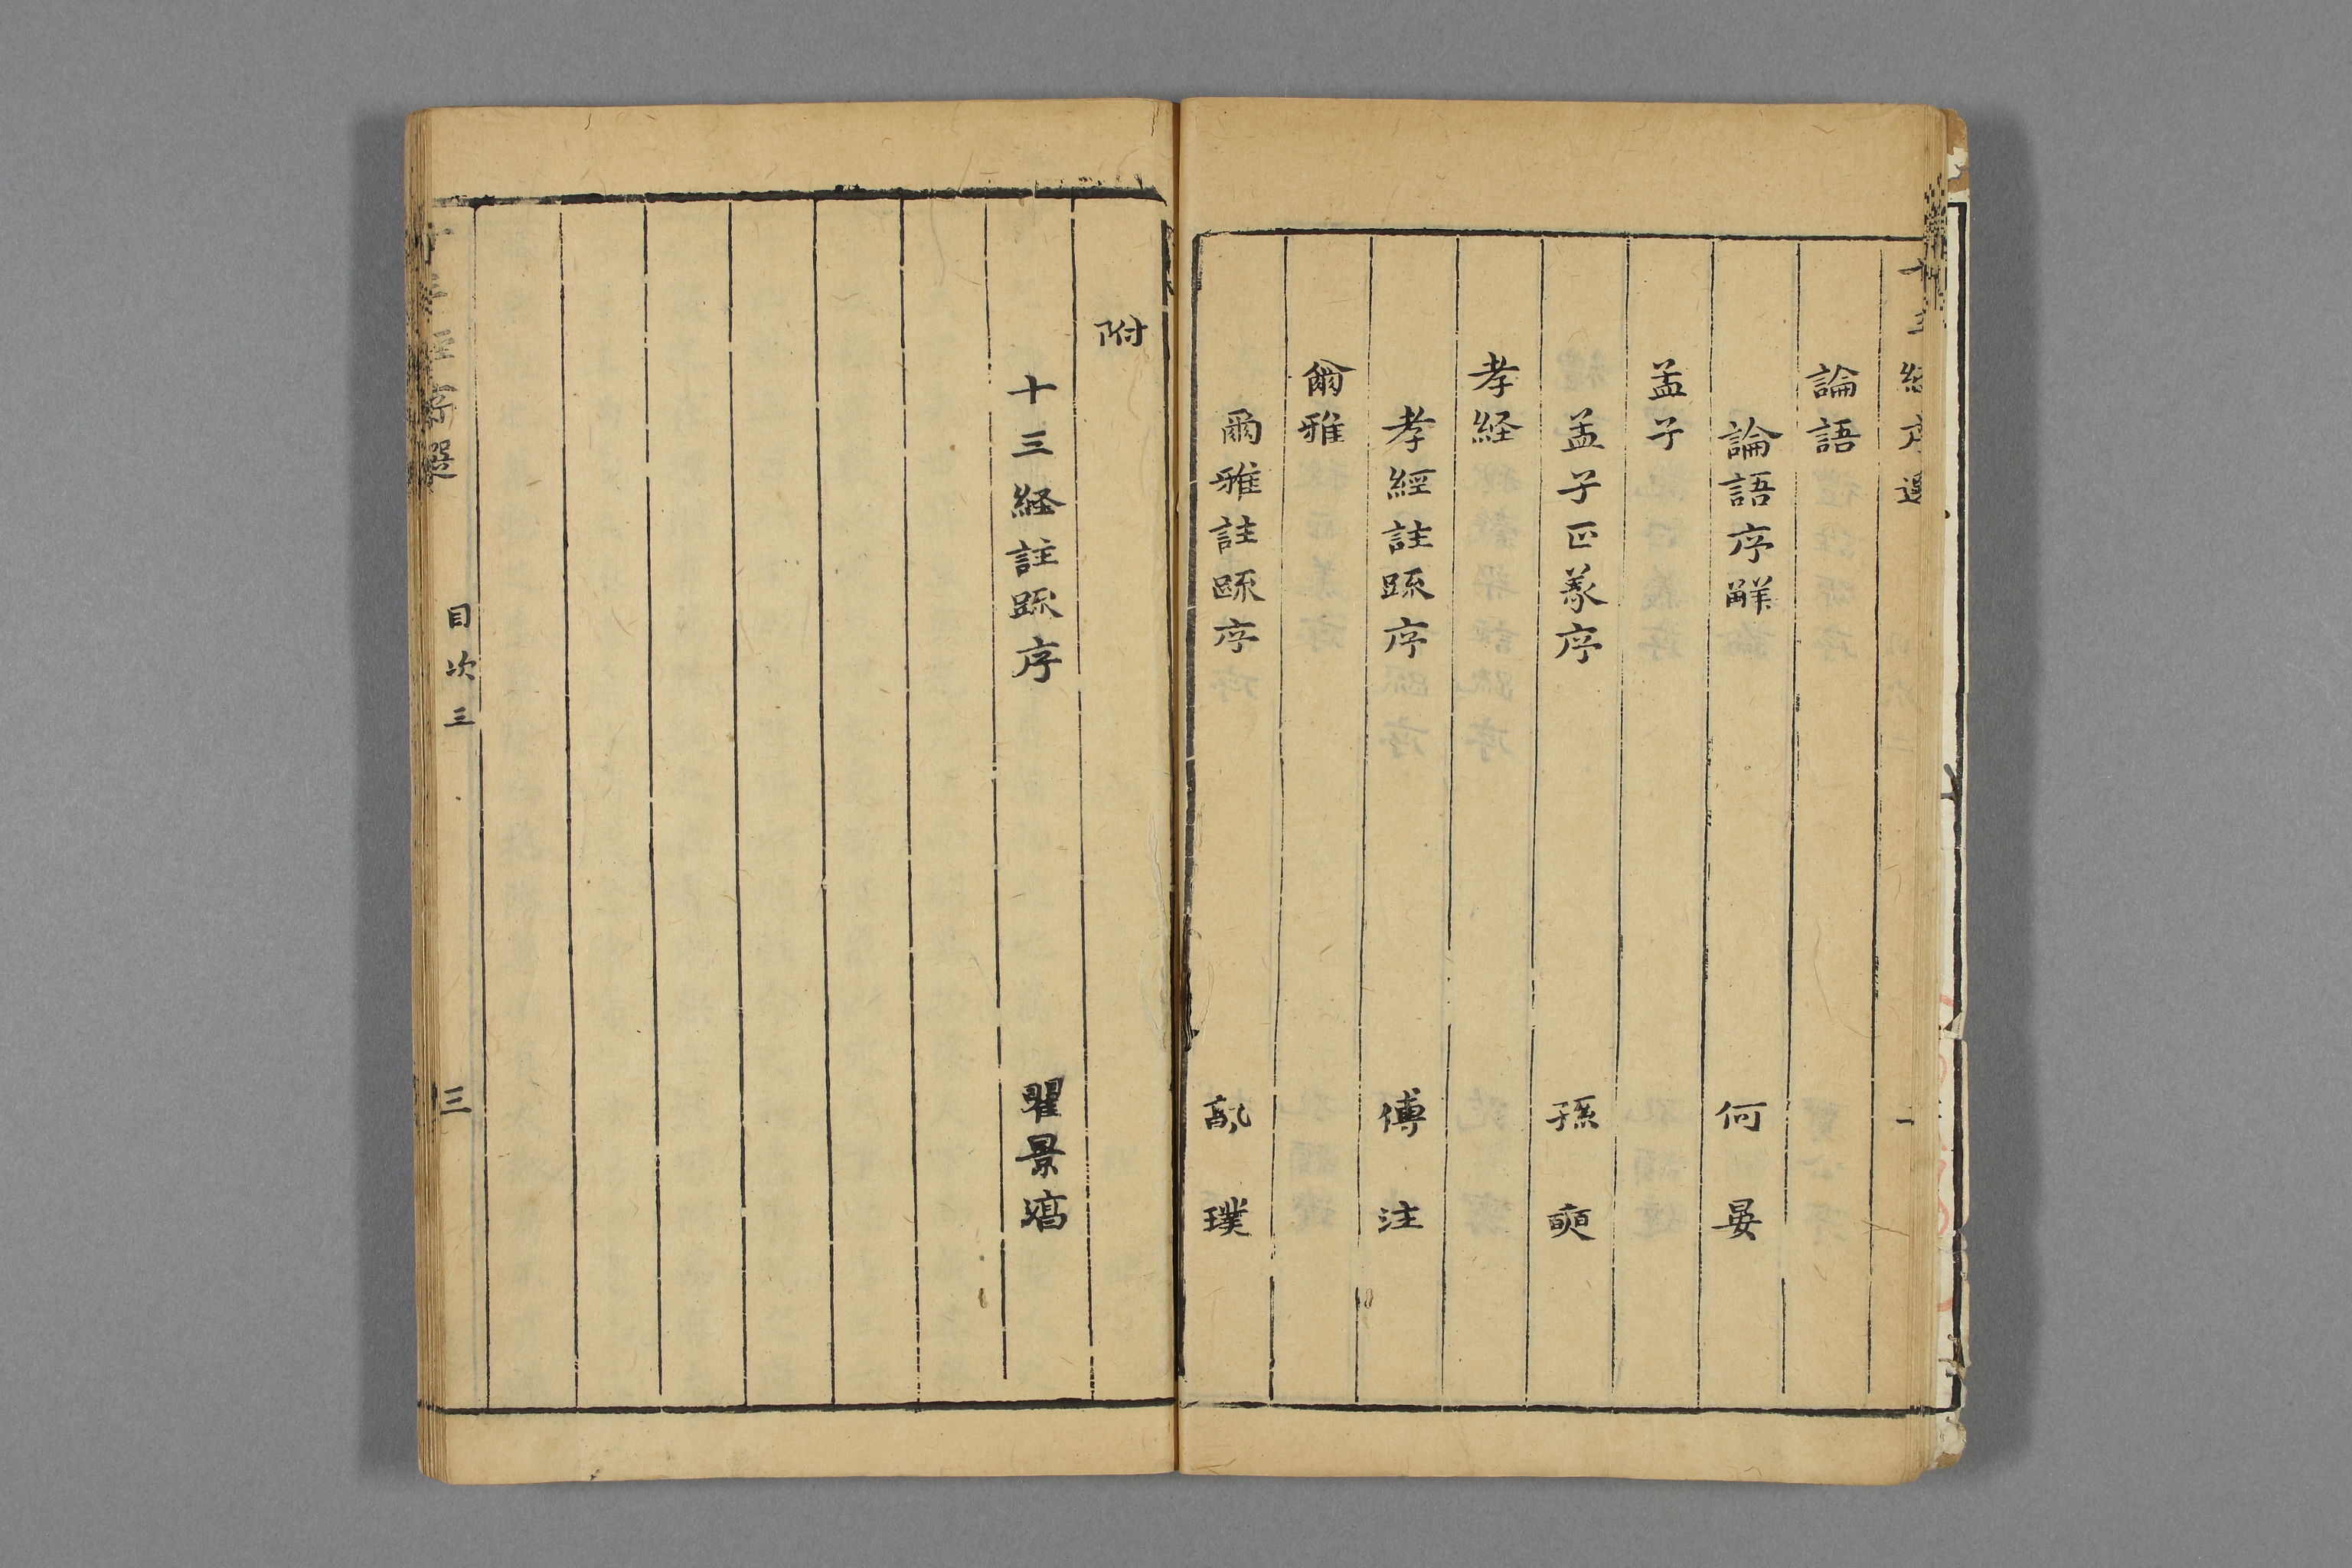 十三經序選
二
論語
論語序解 何晏
孟子
孟子正義序 孫奭
孝経
孝經註䟽序 傅注
爾雅
爾雅註䟽序 璞
附
十三経註䟽序 瞿景淳
十三經序選 目次三 三